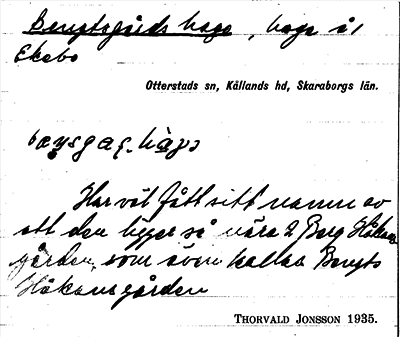 Bengtsgårds hage, hage å 1
Ekebo
Otterstads sn, Kållands hd, Skaraborgs län.
Har väl fått sitt namn av
att den ligger så nära 2 Berg Håkans
gården, som även kallas Bengts
Håkansgården
THORVALD JONSSON 1935.